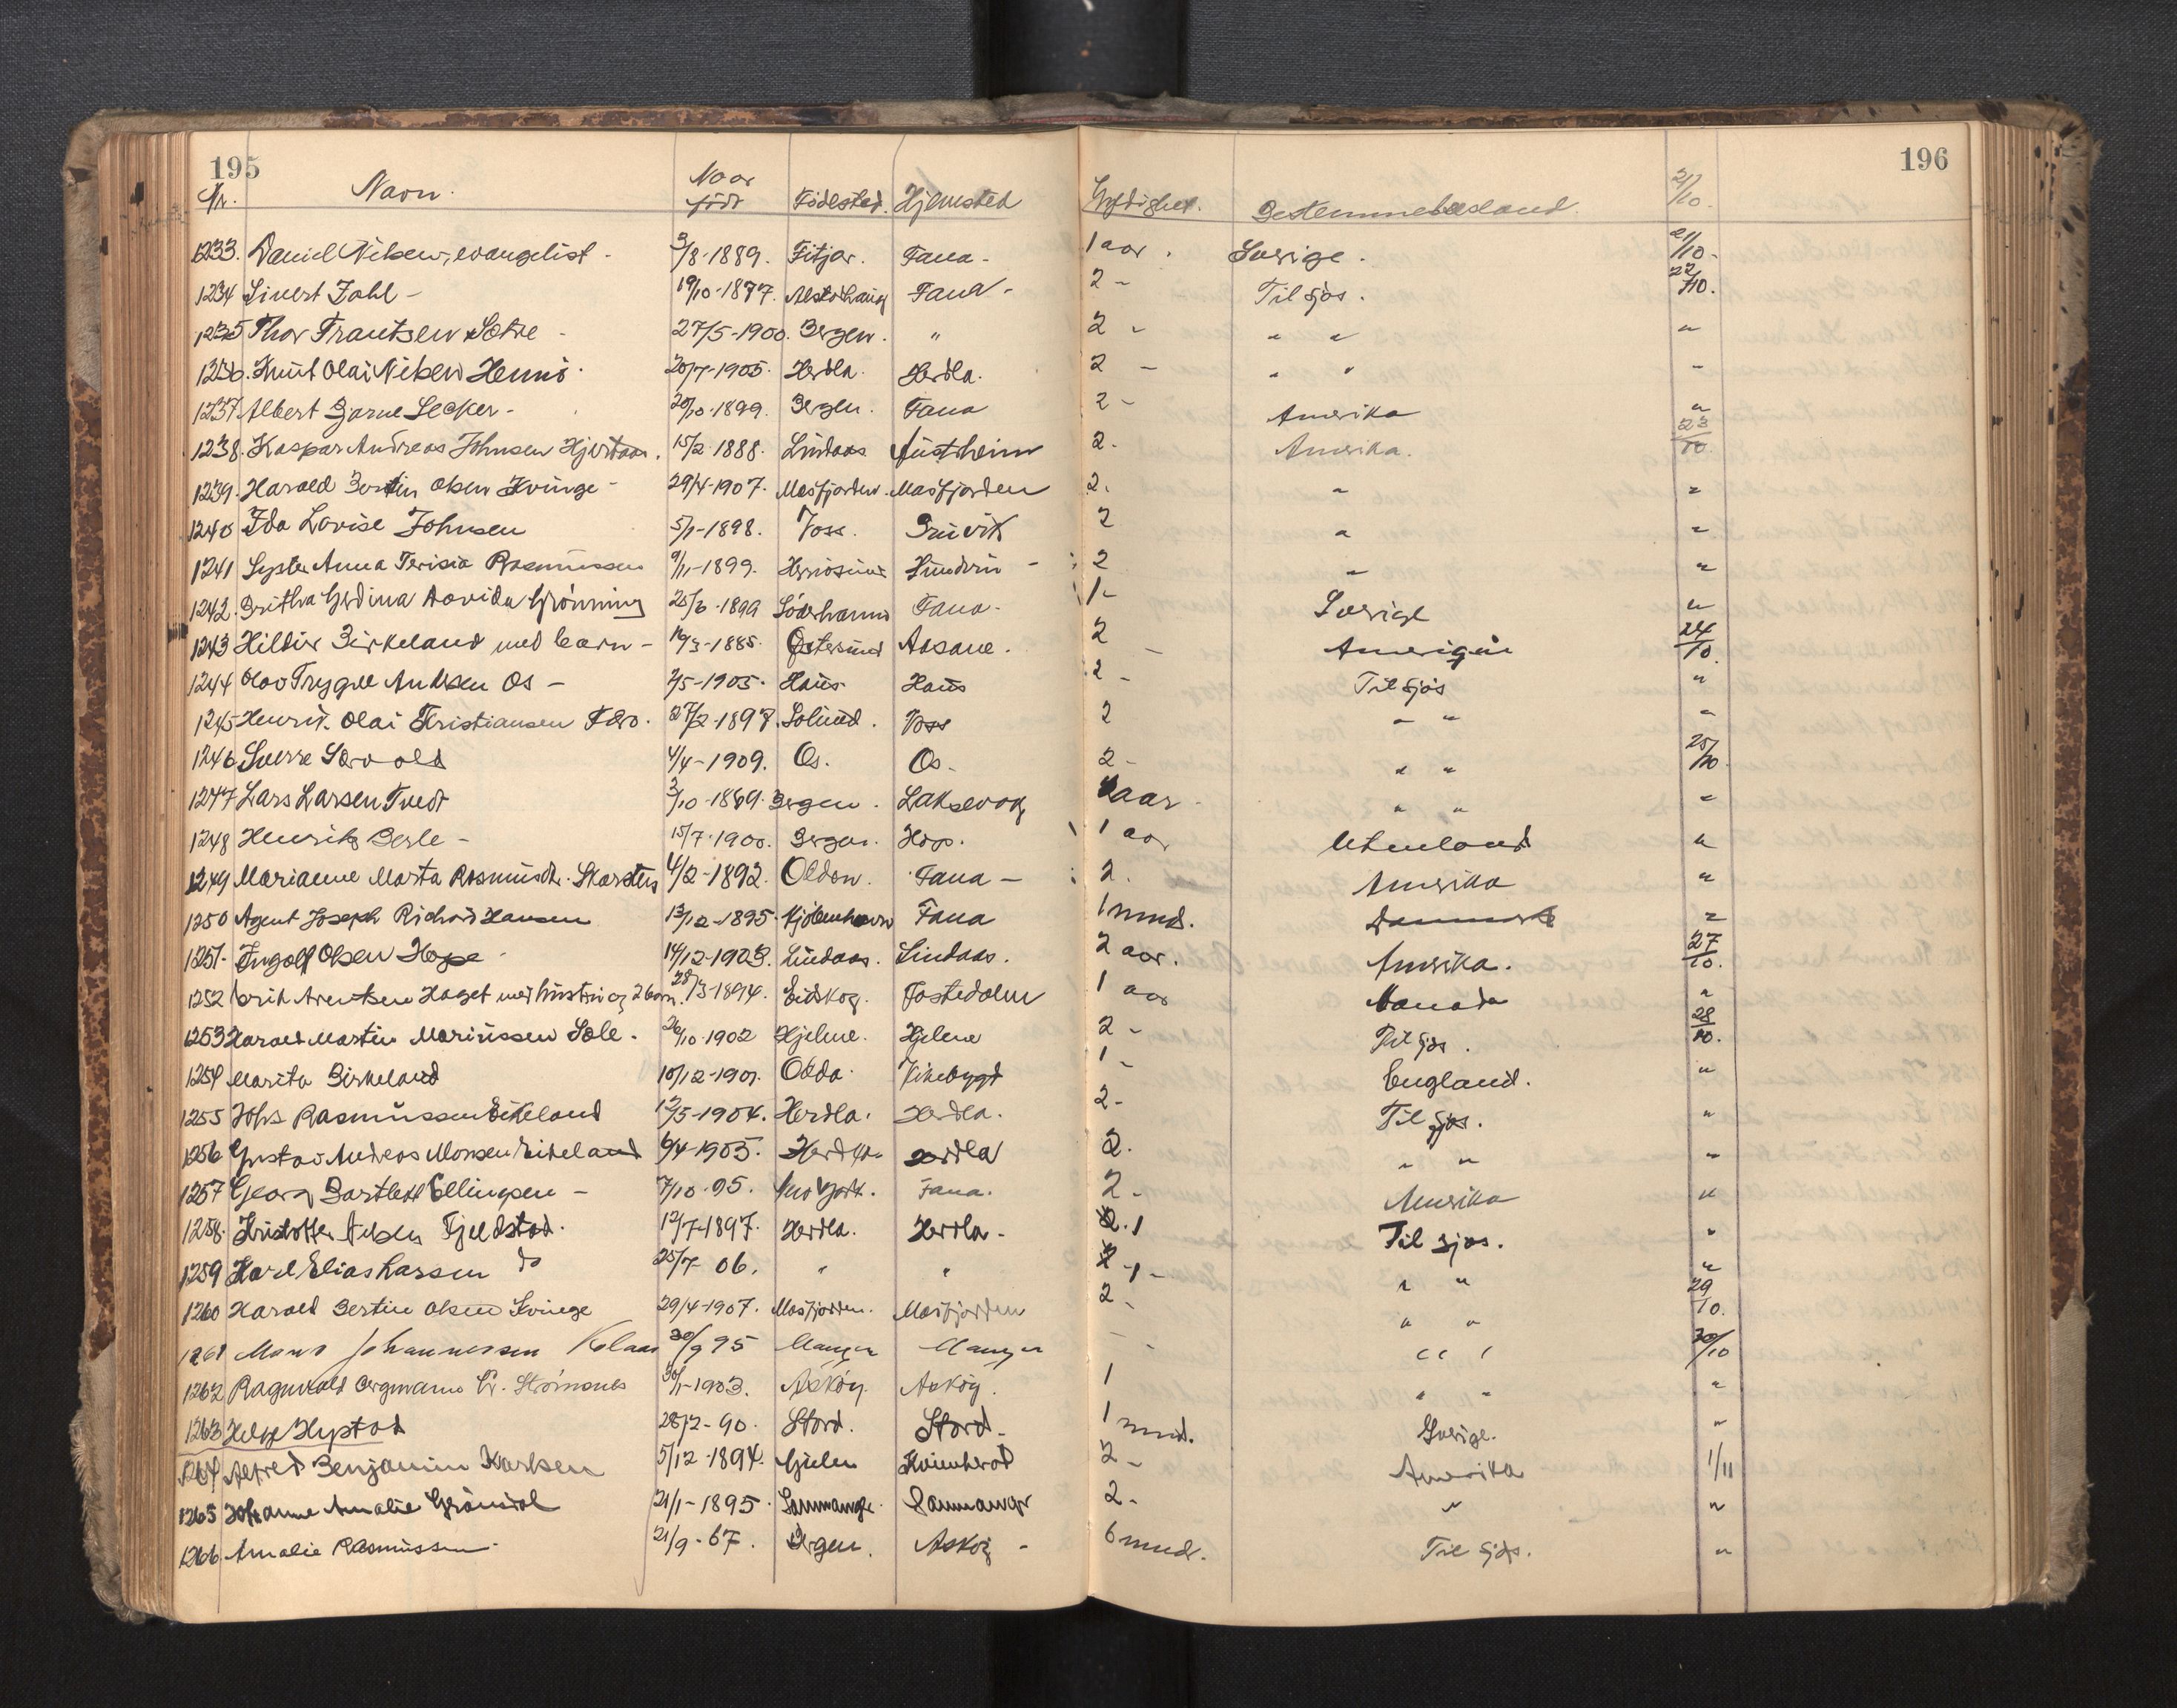 195 196
Nr. Navn. Naar født Fødested. Hjemsted Gyldighet. Bestemmelsesland 21/10.
1233. Daniel Nilsen, evangelist - 3/8-1889. Fitjar. Fana - 1 aar. Sverige. 21/10-
1234 Sivert Dahl - 19/10-1877. Alstahaug Fana - 2 - Til sjøs. 22/10.
1235 Thor Frantsen Sætre - 27/5-1900. Bergen. " 2 - " " "
1236. Knut Olai Nilsen Hennø. 20/7-1905. Herdla. Herdla. 2 - " " -
1237 Albert Bjarne Secker - 20/10-1899. Bergen. Fana 2 - Amerika "
1238. Kaspar Andreas Johnsen Hjertaas. 15/2-1888. Lindaas Austrheim 2. Amerika. 23/10.
1239. Harald Bertin Olsen Kvinge - 29/4-1907. Masfjorden. Masfjorden 2. " "
1240 Ida Lovise Johnsen 5/1-1898. Voss. 2 " "
1241 Anna Rasmussen 9/11-1899. 2 " "
1242. Gerdina Davida Grønning 25/6-1899 Söderhamn Fana - 1 - Sverige "
1243 Hildur Birkeland med barn - 16/3-1885. Östersund Aasane. 2 - Amerika 24/10.
1244 Olav Trygve Os - 2/5-1905. Haus Haus 2 - Til sjøs "
1245 Henrik Olai Kristiansen 27/2-1897. Solund. Voss 2 " " "
1246 Sverre Særvold 4/4-1909. Os. Os - 2 - " " 25/10
1247 Lars Larsen Tvedt 3/10-1889. Bergen. Laksevaag aar " " "
1248 Henrik Berle - 15/7-1900. Bergen. Hop. 1 aar Utenland "
1249 Marianne Marta Rasmusdtr. Skarsten 4/2-1892. Olden. Fana - 2. Amerika "
1250 Agent Joseph Richard Hansen 13/12-1895. Kjöbenhavn Fana 1 mnd. Danmark "
1251. Ingolf Olsen Hope 14/12-1903. Lindaas. Lindaas. 2 aar. Amerika. 27/10.
1252 Erik Arentsen Haget med hustru og 2 barn. 28/3-1894. Eidskog. Fostedalen 1 aar Canada "
1253 Harald Martin Marinussen Sæle. 26/10-1902 Hjelme. Hjelme 2 - Til sjøs. 28/10.
1254 Marita Birkeland 10/12-1901. Odda. Vikebygd 1 - England. "
1255 Johs Rasmussen Eikeland 12/5-1904. Herdla. Herdla. 2 - Til sjøs. "
1256 Gustav Andreas Monsen Eikeland 6/4-1905. Herdla. Herdla 2. " " "
1257 Georg Bartlett Ellingsen - 7/10-95. New York. Fana. 2 - Amerika "
1258. Kristoffer Nilsen Fjeldstad. 12/7-1897. Herdla. Herdla - 2. 1 Til sjøs. "
1259 Karl Elias Larsen do 25/7 06. " " 2 - 1 - " " "
1260 Harald Bertin Olsen Kvinge 29/4-1907. Masfjorden. Masfjorden 2 - " " 29/10.
1261 Mons Johannessen 30/9 95 Manger Manger - " " 30/10
1262 Ragnvald Strömsnes 30/1-1903. Askøy. Askøy. 1 " " "
1263 Helge Hystad 28/2-90. Stord. Stord - 1 mnd. Sverige. "
1264 Alfred Benjamin Karlsen 5/12-1894. Gulen Kvinnherad 2 - Amerika 1/11
1265 Johanne Amalie Grönsdal 21/1-1895. Samnanger. Samnanger 2 - " "
1266 Amalie Rasmussen 21/9-67. Bergen. Askøy - 6 mndr. Til sjøs. "